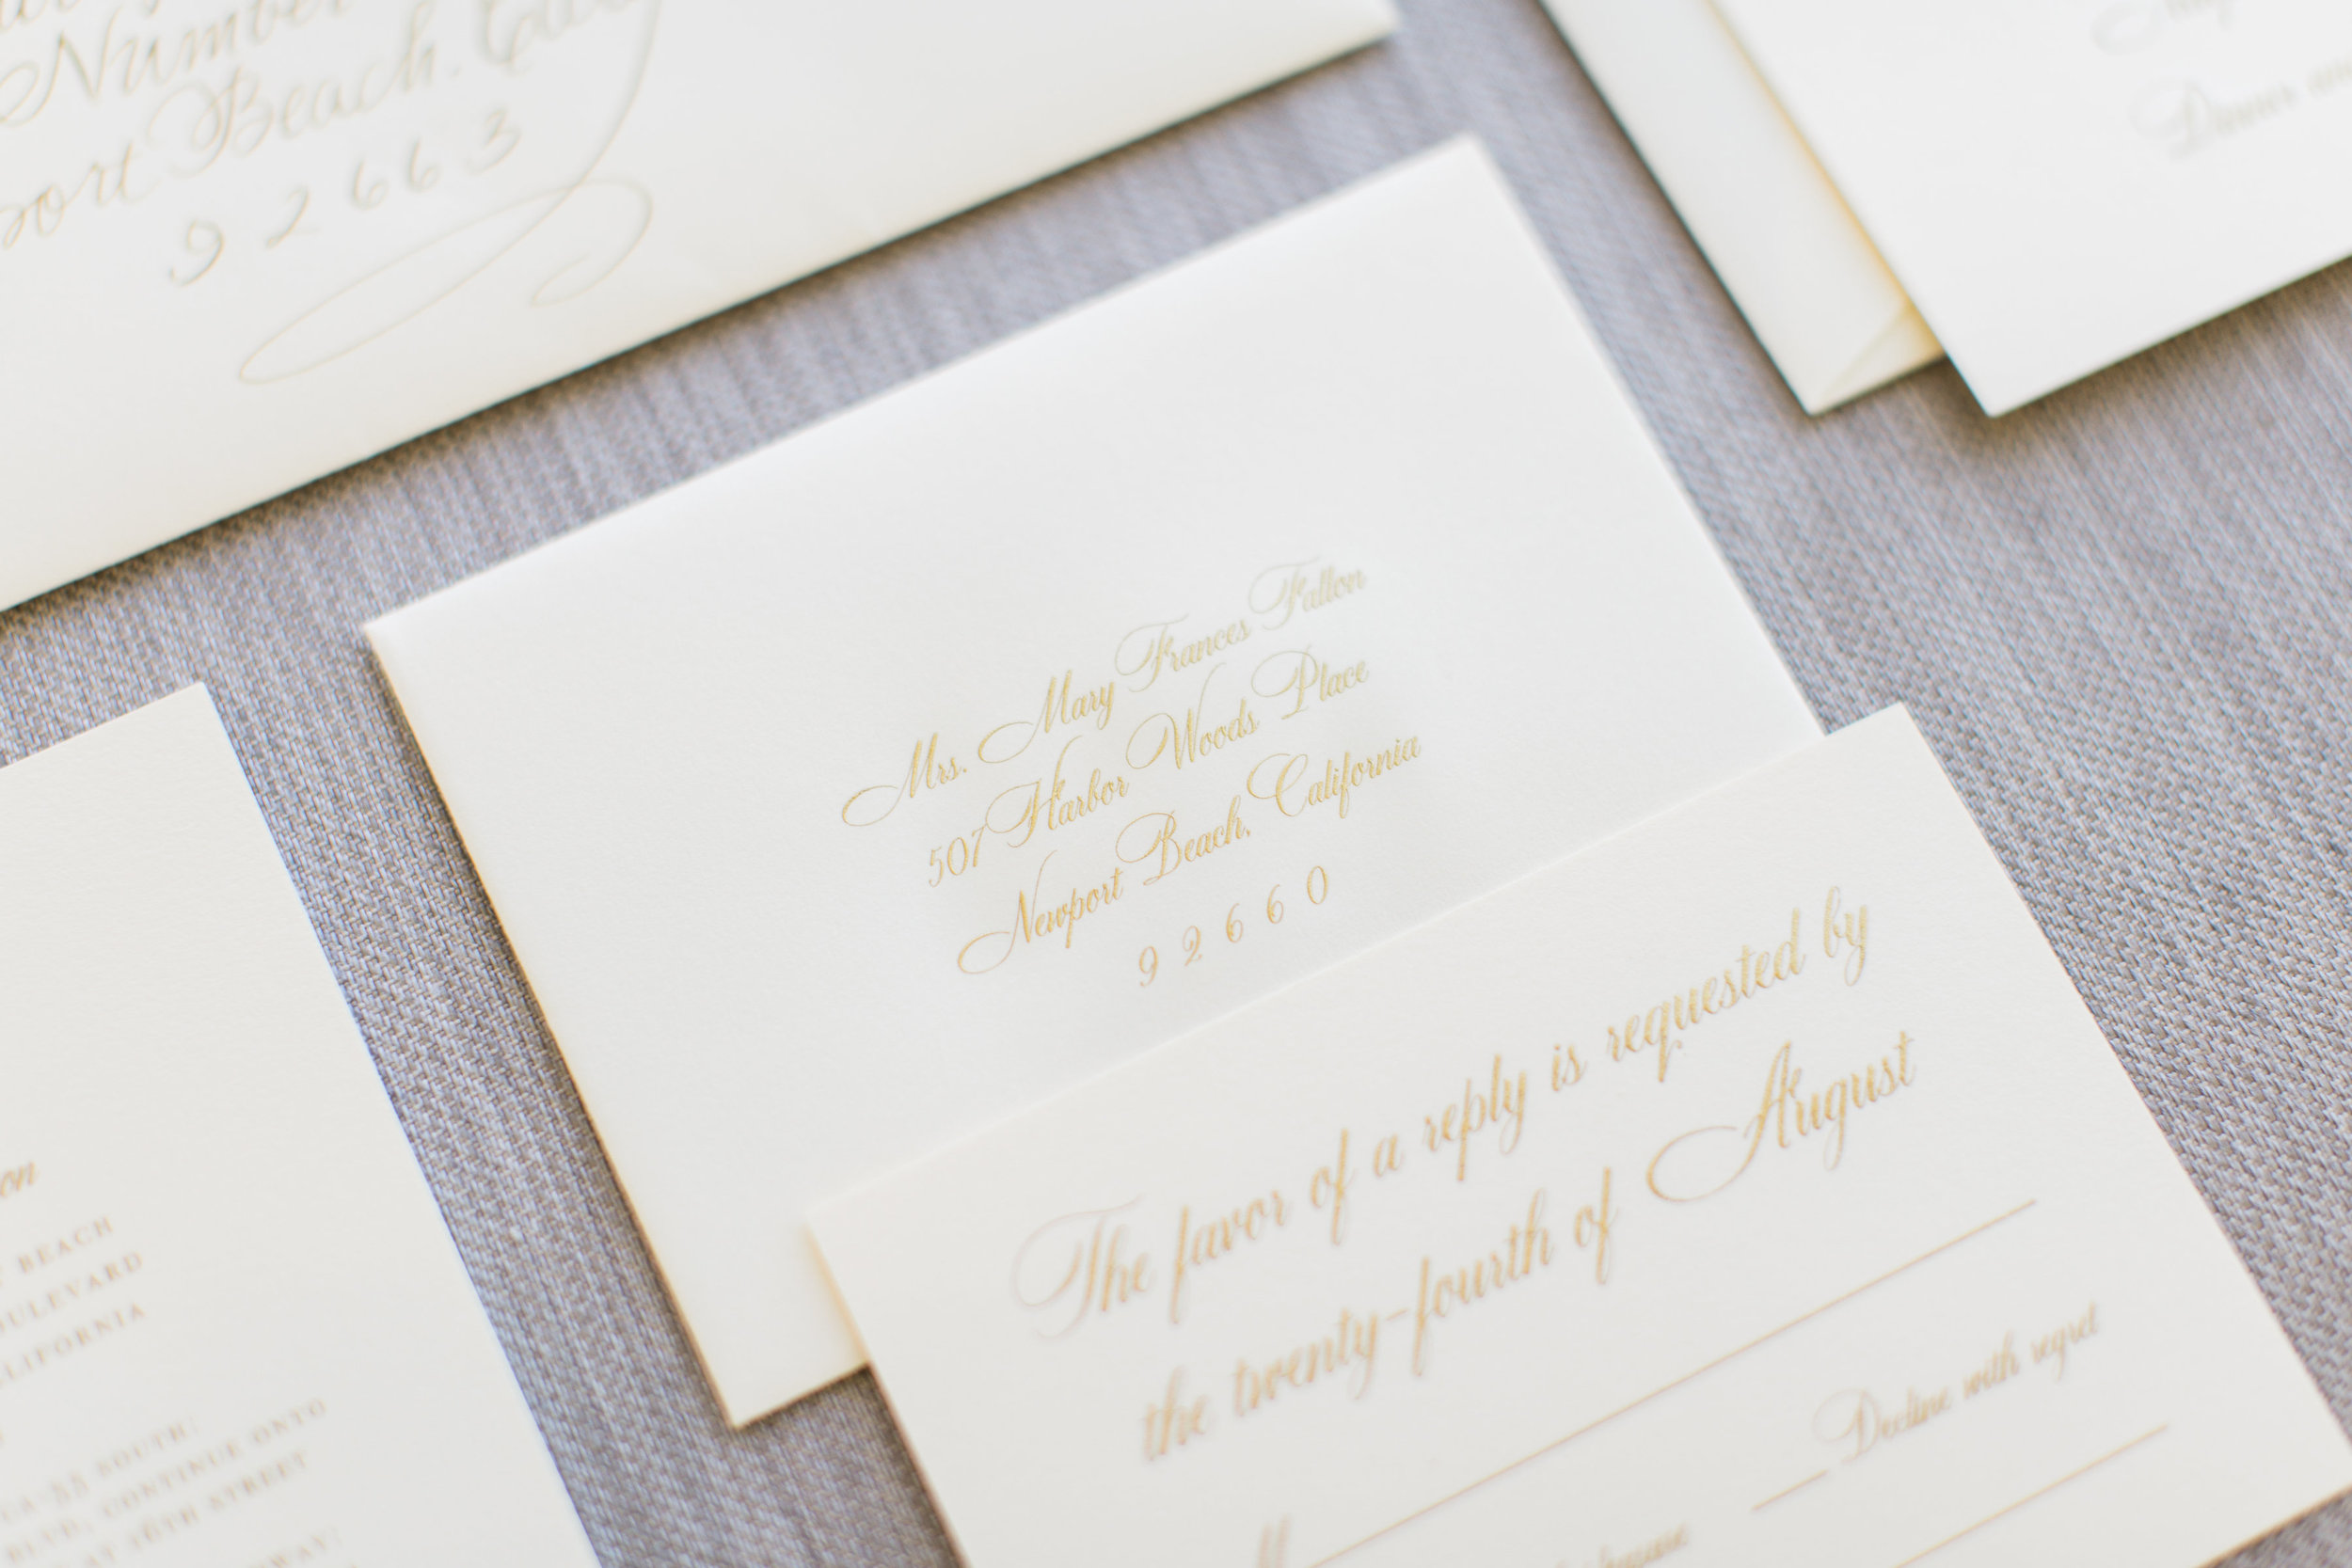 Number
Beach,
92663
Dinner
Mrs. Mary Frances Fallon
507 Harbor Woods Place
Newport Beach, California
92660
The favor of a reply is requested by
the twenty-fourth of August
M
Decline with regret
BEACH
CA-55 SOUTH:
BLVD, CONTINUE ONTO
AT 16TH STREET